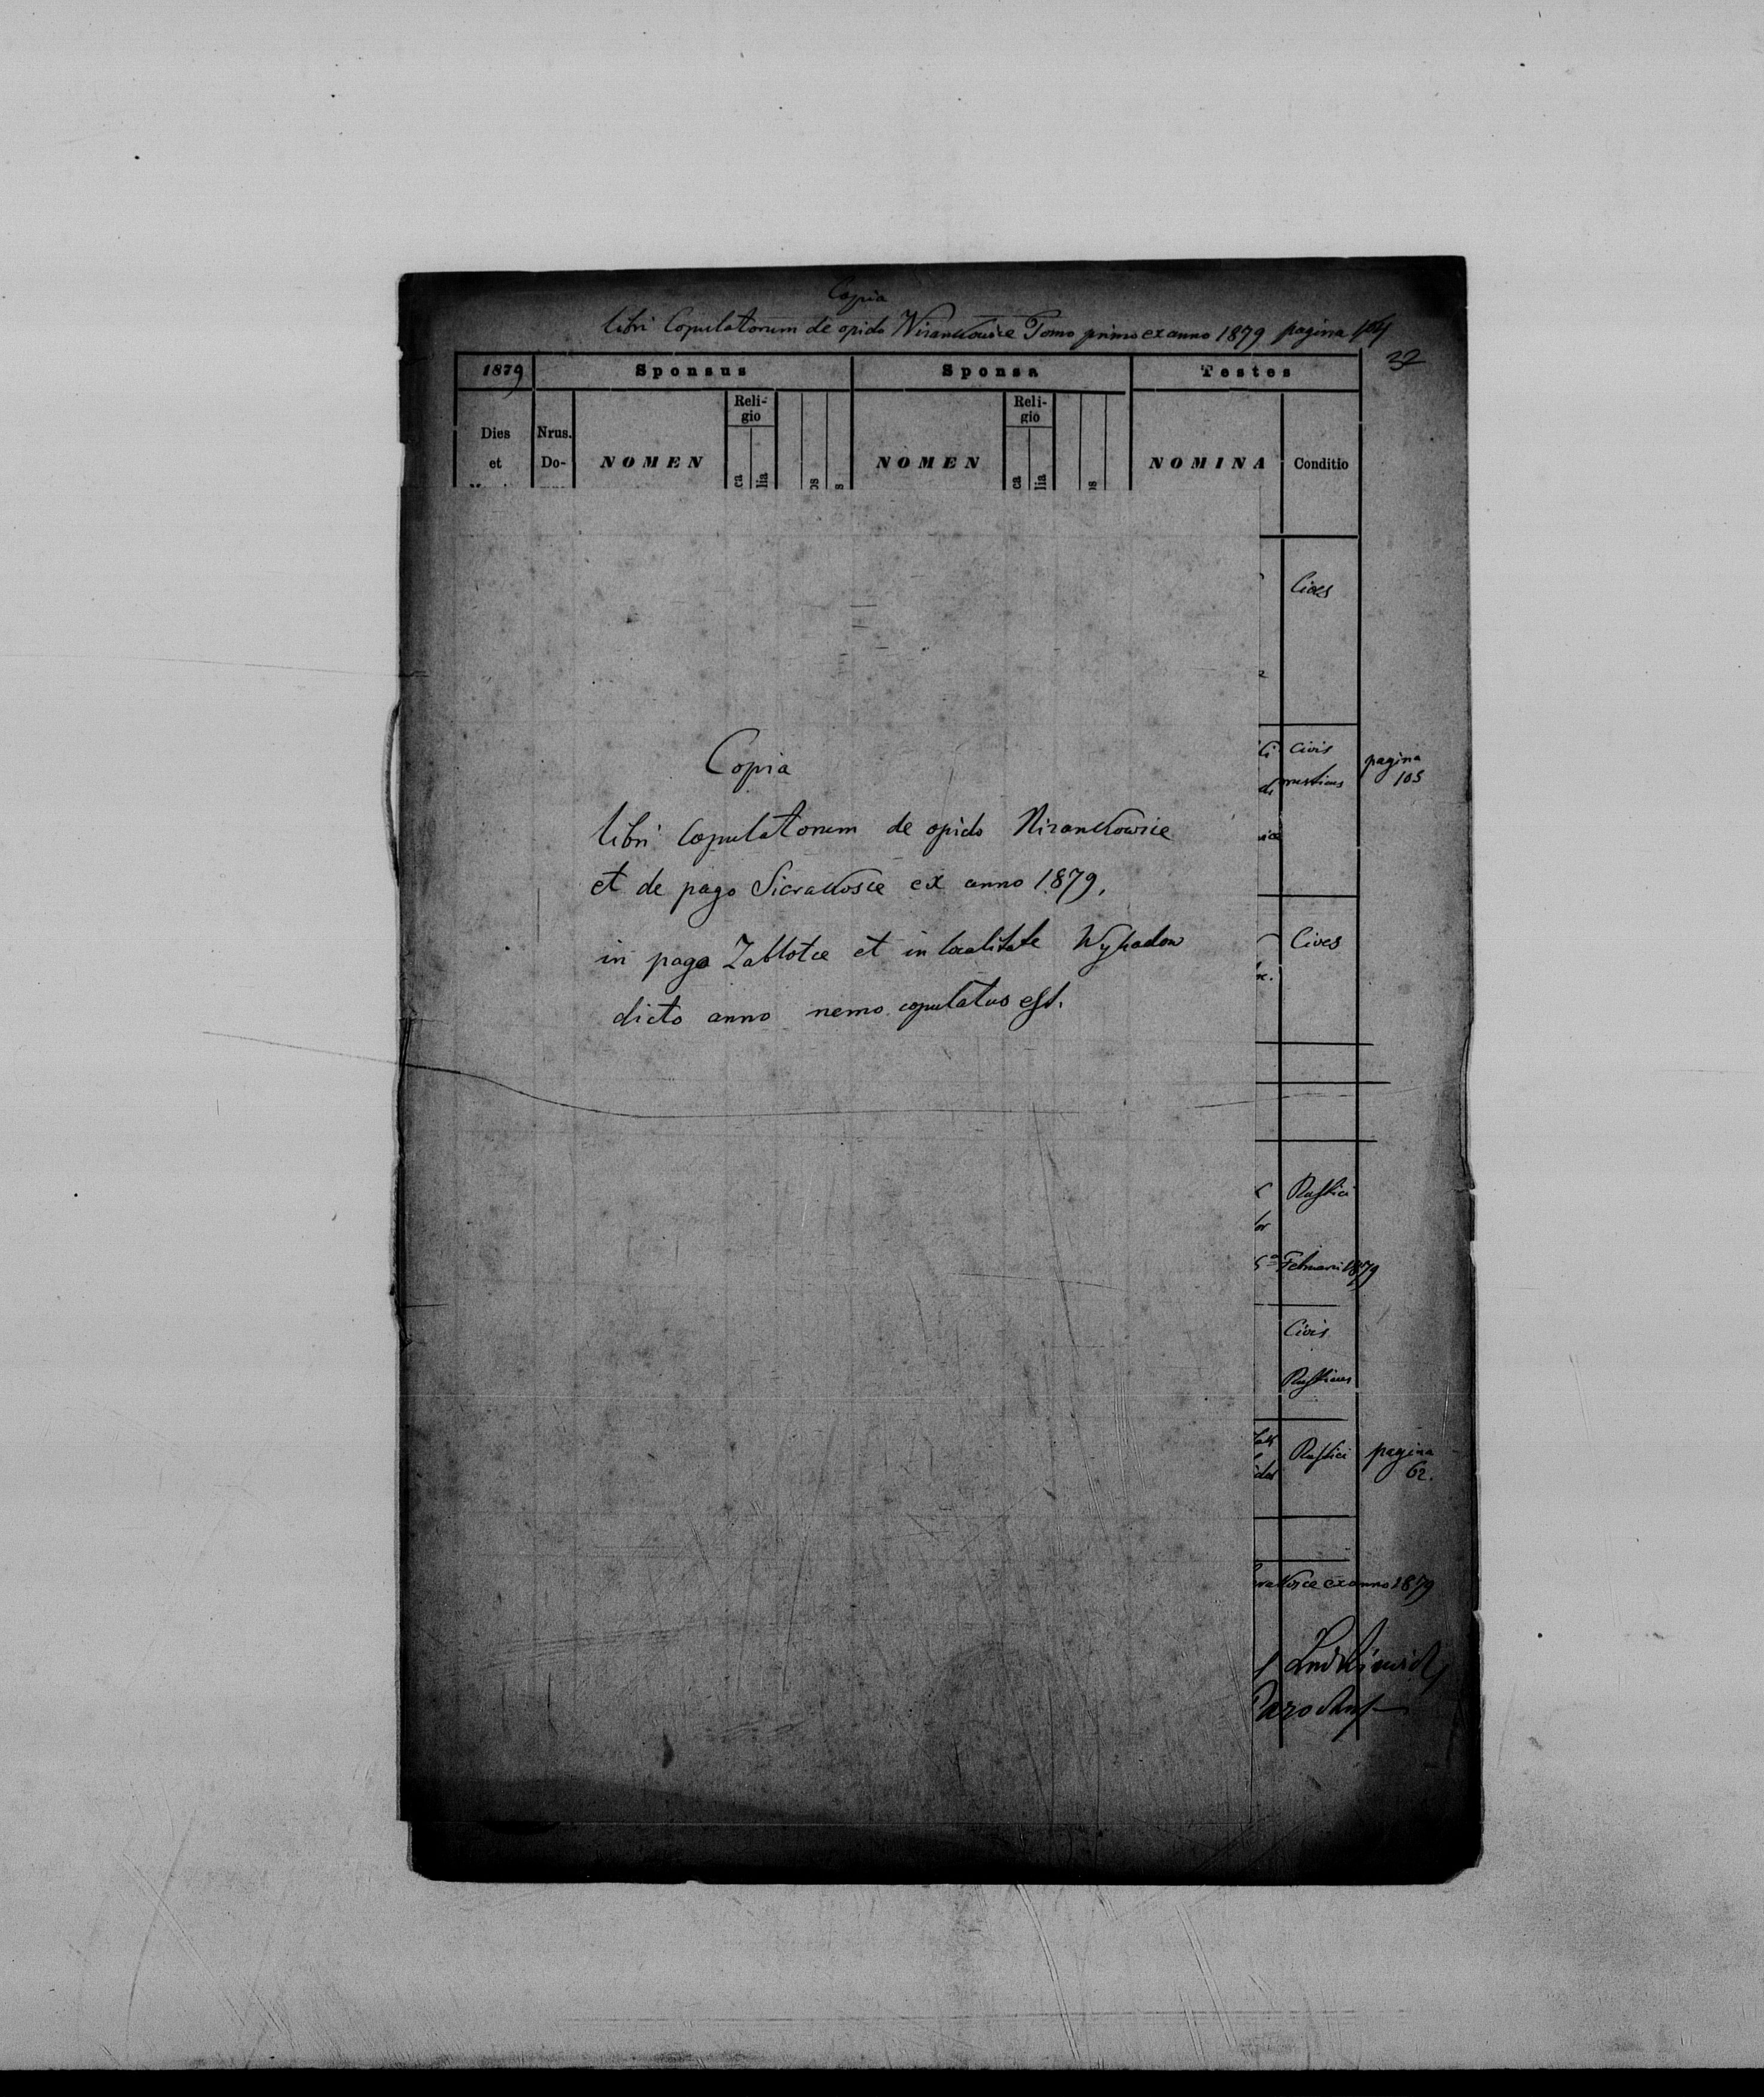 Copia
libri Copulatorum de opido Nizankowice Tomo primo ex anno 1879 pagina 104
32
1879 Sponsus Sponsa Testes
Reli-
gio
Reli-
gio
Dies
et
Nrus.
Do-
NOMEN
ca
lia
os
s
NOMEN
ca
lia
s
NOMINA
Conditio
Cives
Civis
rusticus
pagina
105
Cives
Copia
libri Copulatorum de opido Nizankowice
et de pago Sierakosce ex anno 1879,
in pago Zablotce et in localitate Wyhadow
dicto anno nemo copulatus est.
Rustici
Februarii 1879
Civis
Rusticus
Rustici
pagina
62.
ex anno 1879
Parochus